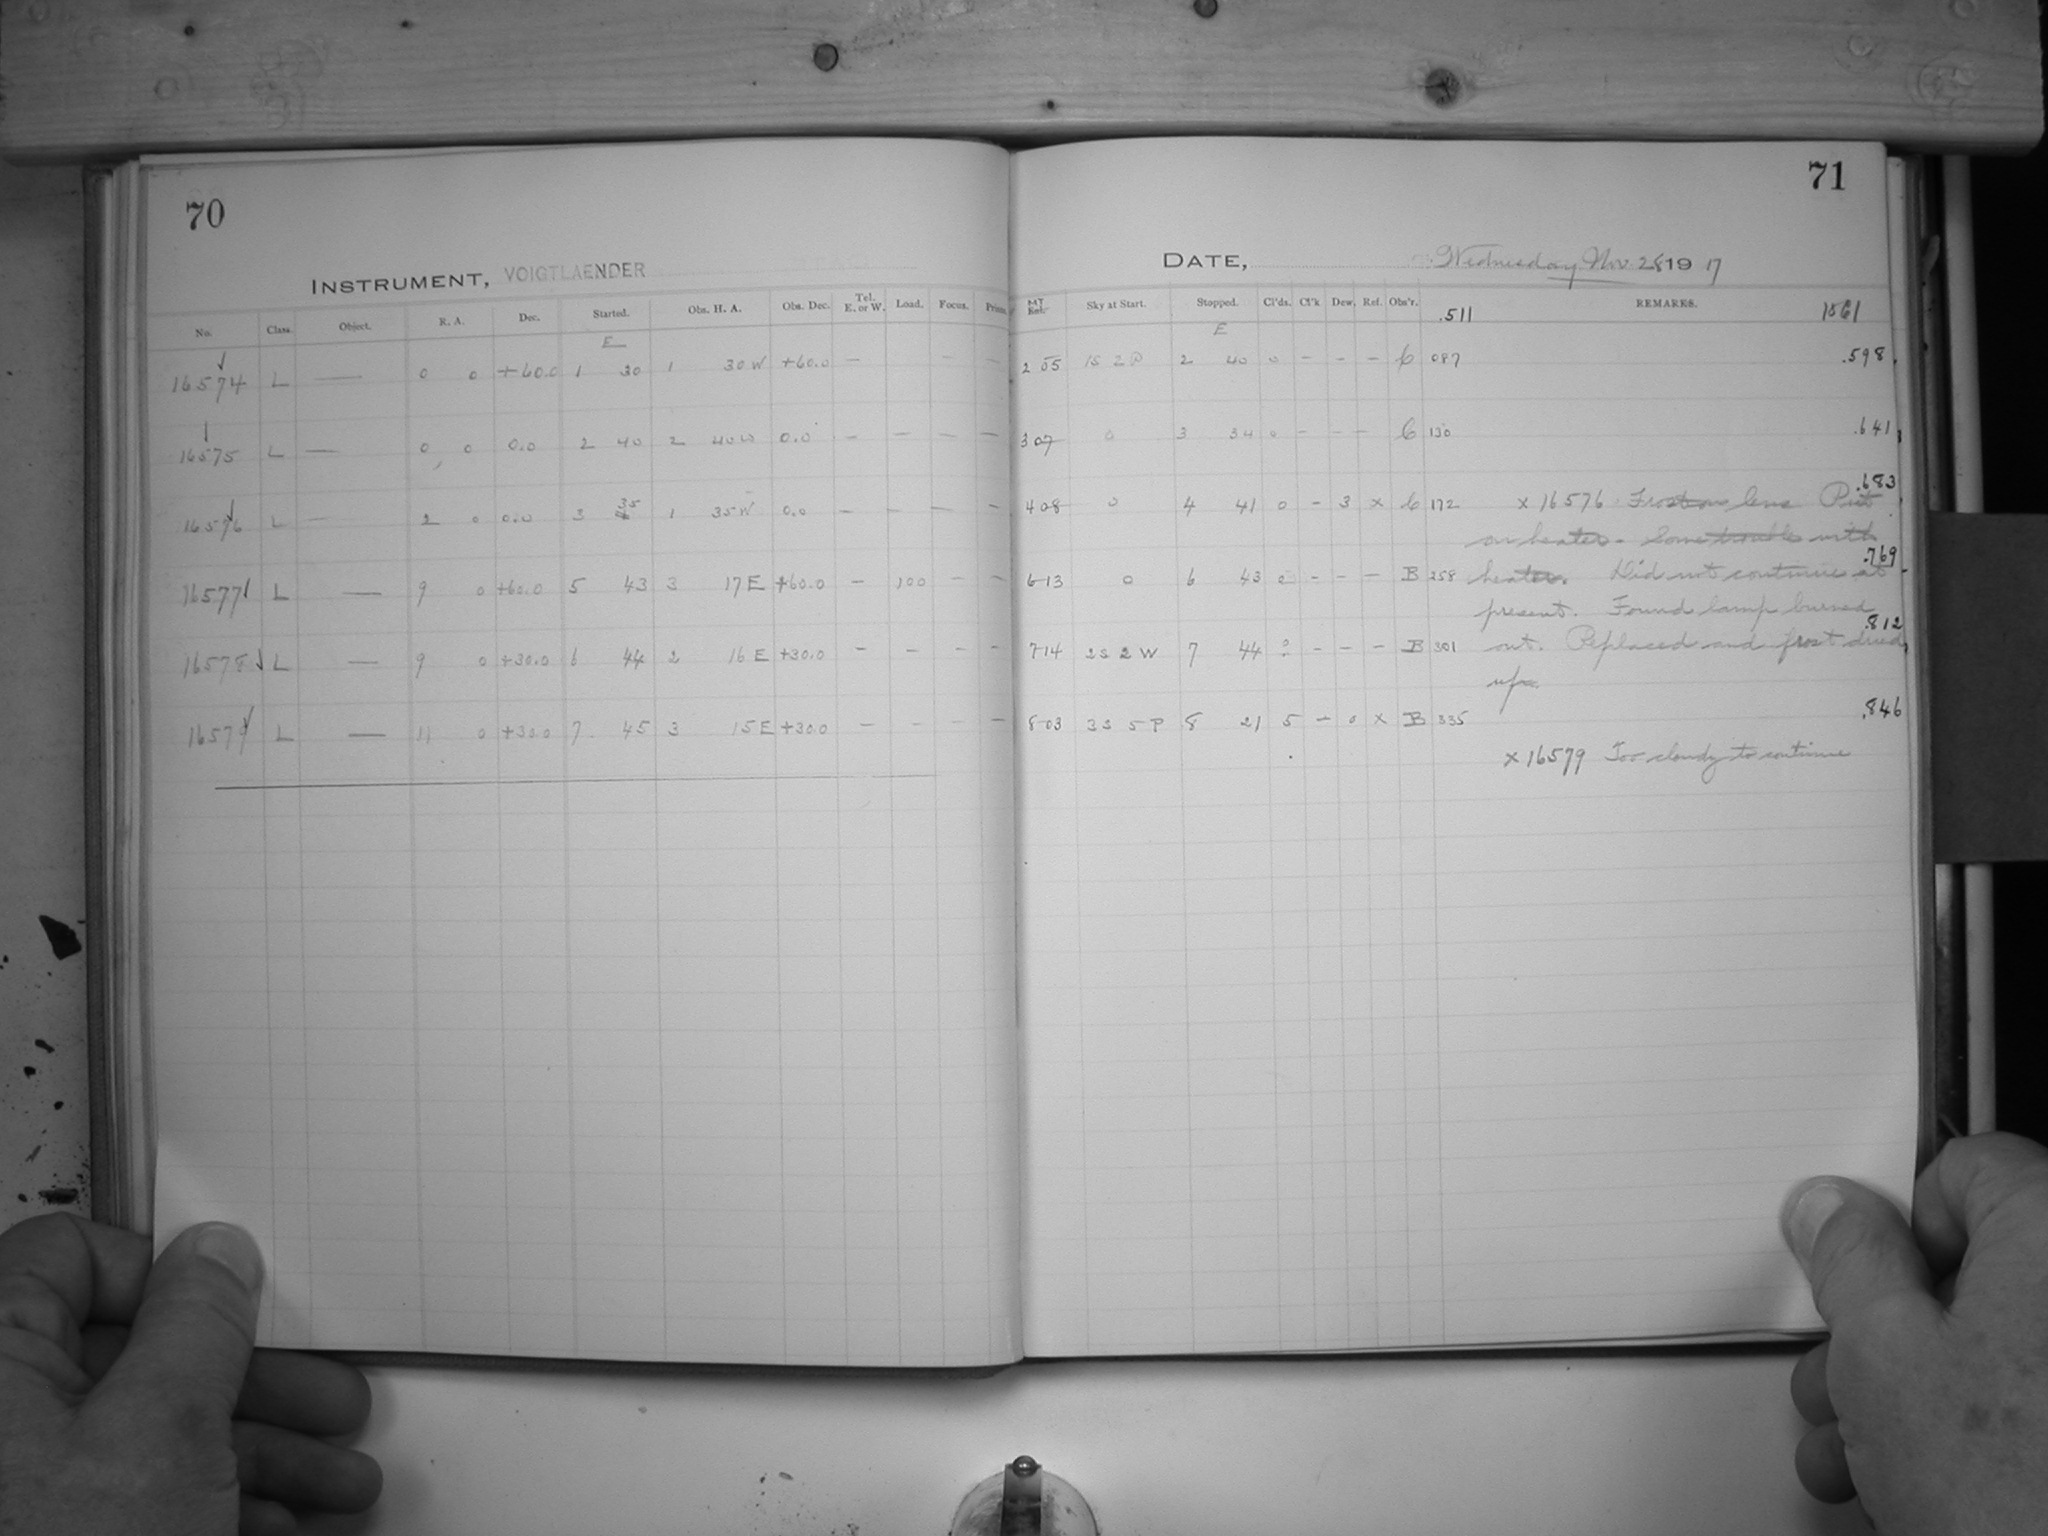 70
INSTRUMENT, VOIGTLAENDER
No. Class. Object. R. A. Dec. Started. Obs. H. A. Obs. Dec. Tel. E. or W. Load. Focus. Prism.
E
16574 L — 0 0 +60.0 1 30 1 30 W +60.0 — — —
16575 L — 0 0 0.0 2 40 2 40 W 0.0 — — — —
16576 L — 2 0 0.0 3 35 1 35 W 0.0 — — — —
16577 L — 9 0 +60.0 5 43 3 17 E +60.0 — 100 — —
16578 L — 9 0 +30.0 6 44 2 16 E +30.0 — — — —
16579 L — 11 0 +30.0 7 45 3 15 E +30.0 — — — —
71
DATE, Wednesday Nov. 28 1917
MT Rel. Sky at Start. Stopped. Cl'ds. Cl'k Dew. Ref. Obs'r. .511 REMARKS. 1561
E
2 05 1S 2 P 2 40 0 — — — C 087 .598
3 07 0 3 34 0 — — — C 130 .641
4 08 0 4 41 0 — 3 x C 172 x 16576 Frost on lens Put .683
on heater. Some trouble with
6 13 0 6 43 0 — — — B 258 heater. Did not continue at .769
present. Found lamp burned
7 14 2S 2 W 7 44 ? — — — B 301 out. Replaced and frost dried .812
up.
8 03 3S 5 P 8 21 5 — 0 x B 335 .846
x 16579 Too cloudy to continue